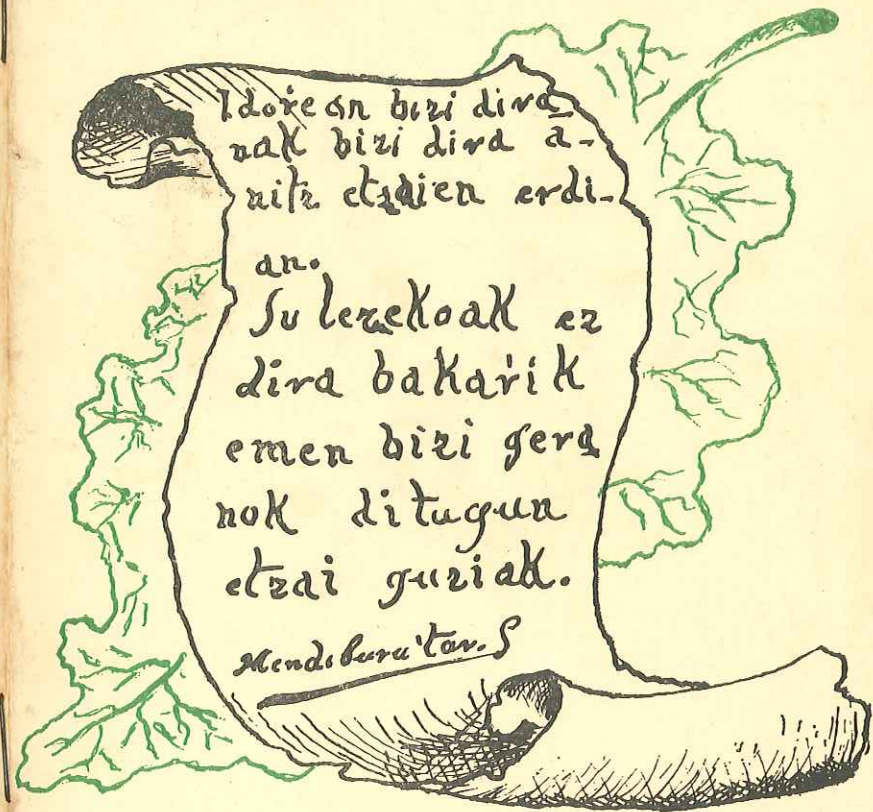 Idoŕean bizi dira
nak bizi dira a-
nitz etzaien erdi-
an.
Su lezekoak ez
dira bakaŕik
emen bizi gera
nok ditugun
etzai guziak.
Mendiburu'tar. S